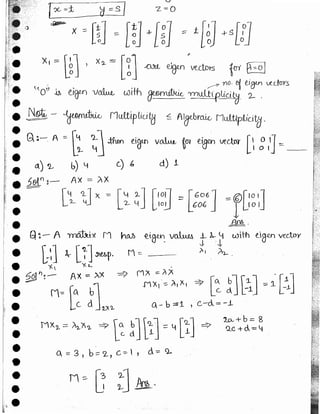 x = t y = S z = 0
X = [t S 0] = [t 0 0] + [0 S 0] = t [1 0 0] + S [0 1 0]
X₁ = [1 0 0] , X₂ = [0 1 0] are eigen vectors for λ=0
→ no. of eigen vectors
"0" is eigen value with geometric multiplicity 2.
Note - Geometric Multiplicity ≤ Algebraic Multiplicity.
Q:- A = [4 2 2 4] then eigen value for eigen vector [101 101] = ___
a) 2 b) 4 c) 6 d) 1
Solⁿ:- AX = λX
[4 2 2 4] X = [4 2 2 4] [101 101] = [606 606] = ⑥ [101 101]
Ans.
Q:- A matrix M has eigen values 1 & 4 with eigen vector
λ₁ λ₂
[1 -1] & [2 1] resp. M = ___
X₁ X₂
Solⁿ:- AX = λX ⇒ MX = λX
M = [a b c d]₂ₓ₂ MX₁ = λ₁X₁ ⇒ [a b c d] [1 -1] = 1 [1 -1]
a-b=1 , c-d=-1
MX₂ = λ₂X₂ ⇒ [a b c d] [2 1] = 4 [2 1] ⇒ 2a+b=8
2c+d=4
a=3, b=2, c=1, d=2
M = [3 2 1 2] Ans.